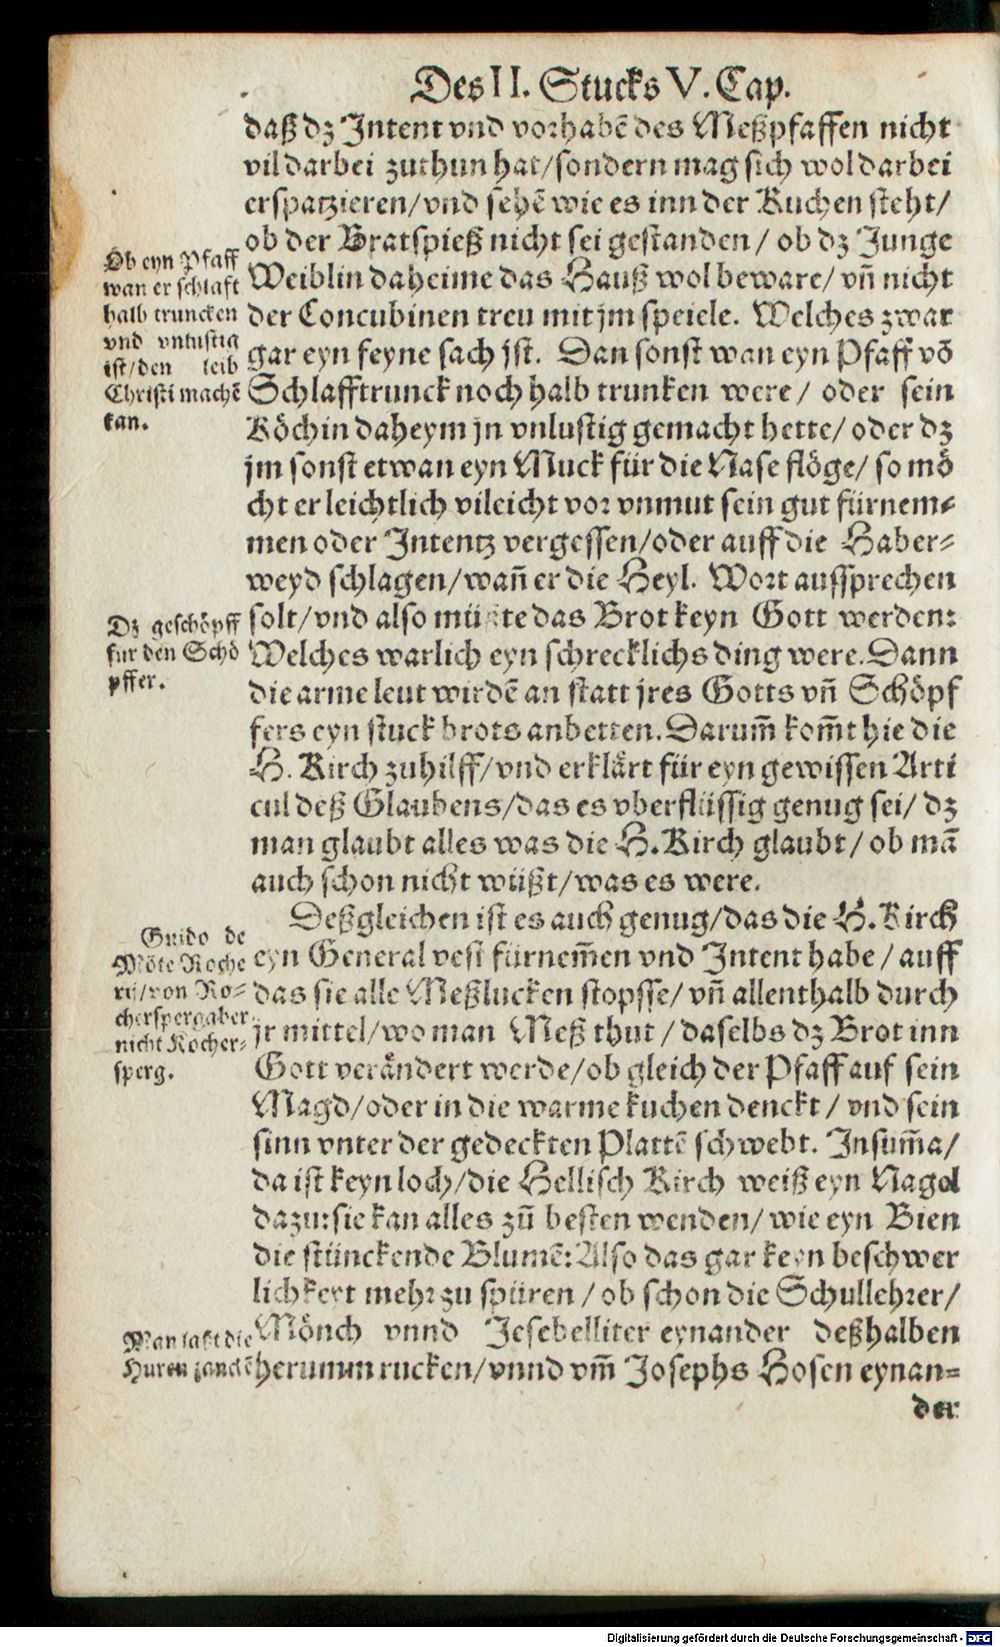 Des II. Stucks V. Cap.
daß dz Intent vnd vorhabē des Meßpfaffen nicht
vil darbei zuthun hat/sondern mag sich wol darbei
erspatzieren/vnd sehē wie es inn der Kuchen steht/
ob der Bratspieß nicht sei gestanden / ob dz Junge
Weiblin daheime das Hauß wol beware/ vn̄ nicht
der Concubinen treu mit jm speiele. Welches zwar
gar eyn feyne sach jst. Dan sonst wan eyn Pfaff vō
Schlafftrunck noch halb trunken were/ oder sein
Köchin daheym jn vnlustig gemacht hette/ oder dz
jm sonst etwan eyn Muck für die Nase flöge/ so mö
cht er leichtlich vileicht vor vnmut sein gut fürnem-
men oder Intentz vergessen/oder auff die Haber-
weyd schlagen/wañ er die Heyl. Wort aussprechen
solt/vnd also müste das Brot keyn Gott werden:
Welches warlich eyn schrecklichs ding were. Dann
die arme leut wirdē an statt jres Gotts vn̄ Schöpf
fers eyn stuck brots anbetten. Darum̄ kom̄t hie die
H. Kirch zuhilff/vnd erklärt für eyn gewissen Arti
cul deß Glaubens/das es vberflüssig genug sei/ dz
man glaubt alles was die H. Kirch glaubt/ ob mā
auch schon nicht wüßt/was es were.
Deßgleichen ist es auch genug/das die H. Kirch
eyn General vest fürnem̄en vnd Intent habe/ auff
das sie alle Meßlucken stopffe/ vn̄ allenthalb durch
jr mittel/wo man Meß thut / daselbs dz Brot inn
Gott verändert werde/ob gleich der Pfaff auf sein
Magd/oder in die warme kuchen denckt / vnd sein
sinn vnter der gedeckten Plattē schwebt. Insum̄a/
da ist keyn loch/die Hellisch Kirch weiß eyn Nagel
dazu: sie kan alles zū besten wenden/ wie eyn Bien
die stünckende Blumē: Also das gar keyn beschwer
lichkeyt mehr zu spüren / ob schon die Schullehrer/
Mönch vnnd Jesebelliter eynander deßhalben
herumm rucken/vnnd vm̄ Josephs Hosen eynan-
der
Ob eyn Pfaff
wan er schlaft
halb truncken
vnd vnlustig
ist/den leib
Christi machē
kan.
Dz geschöpff
für den Schö
pffer.
Guido de
Mōte Roche
rij/von Ro-
cherspergaber
nicht Kocher-
sperg.
Man laßt die
Huren zanckē
Digitalisierung gefördert durch die Deutsche Forschungsgemeinschaft - DFG